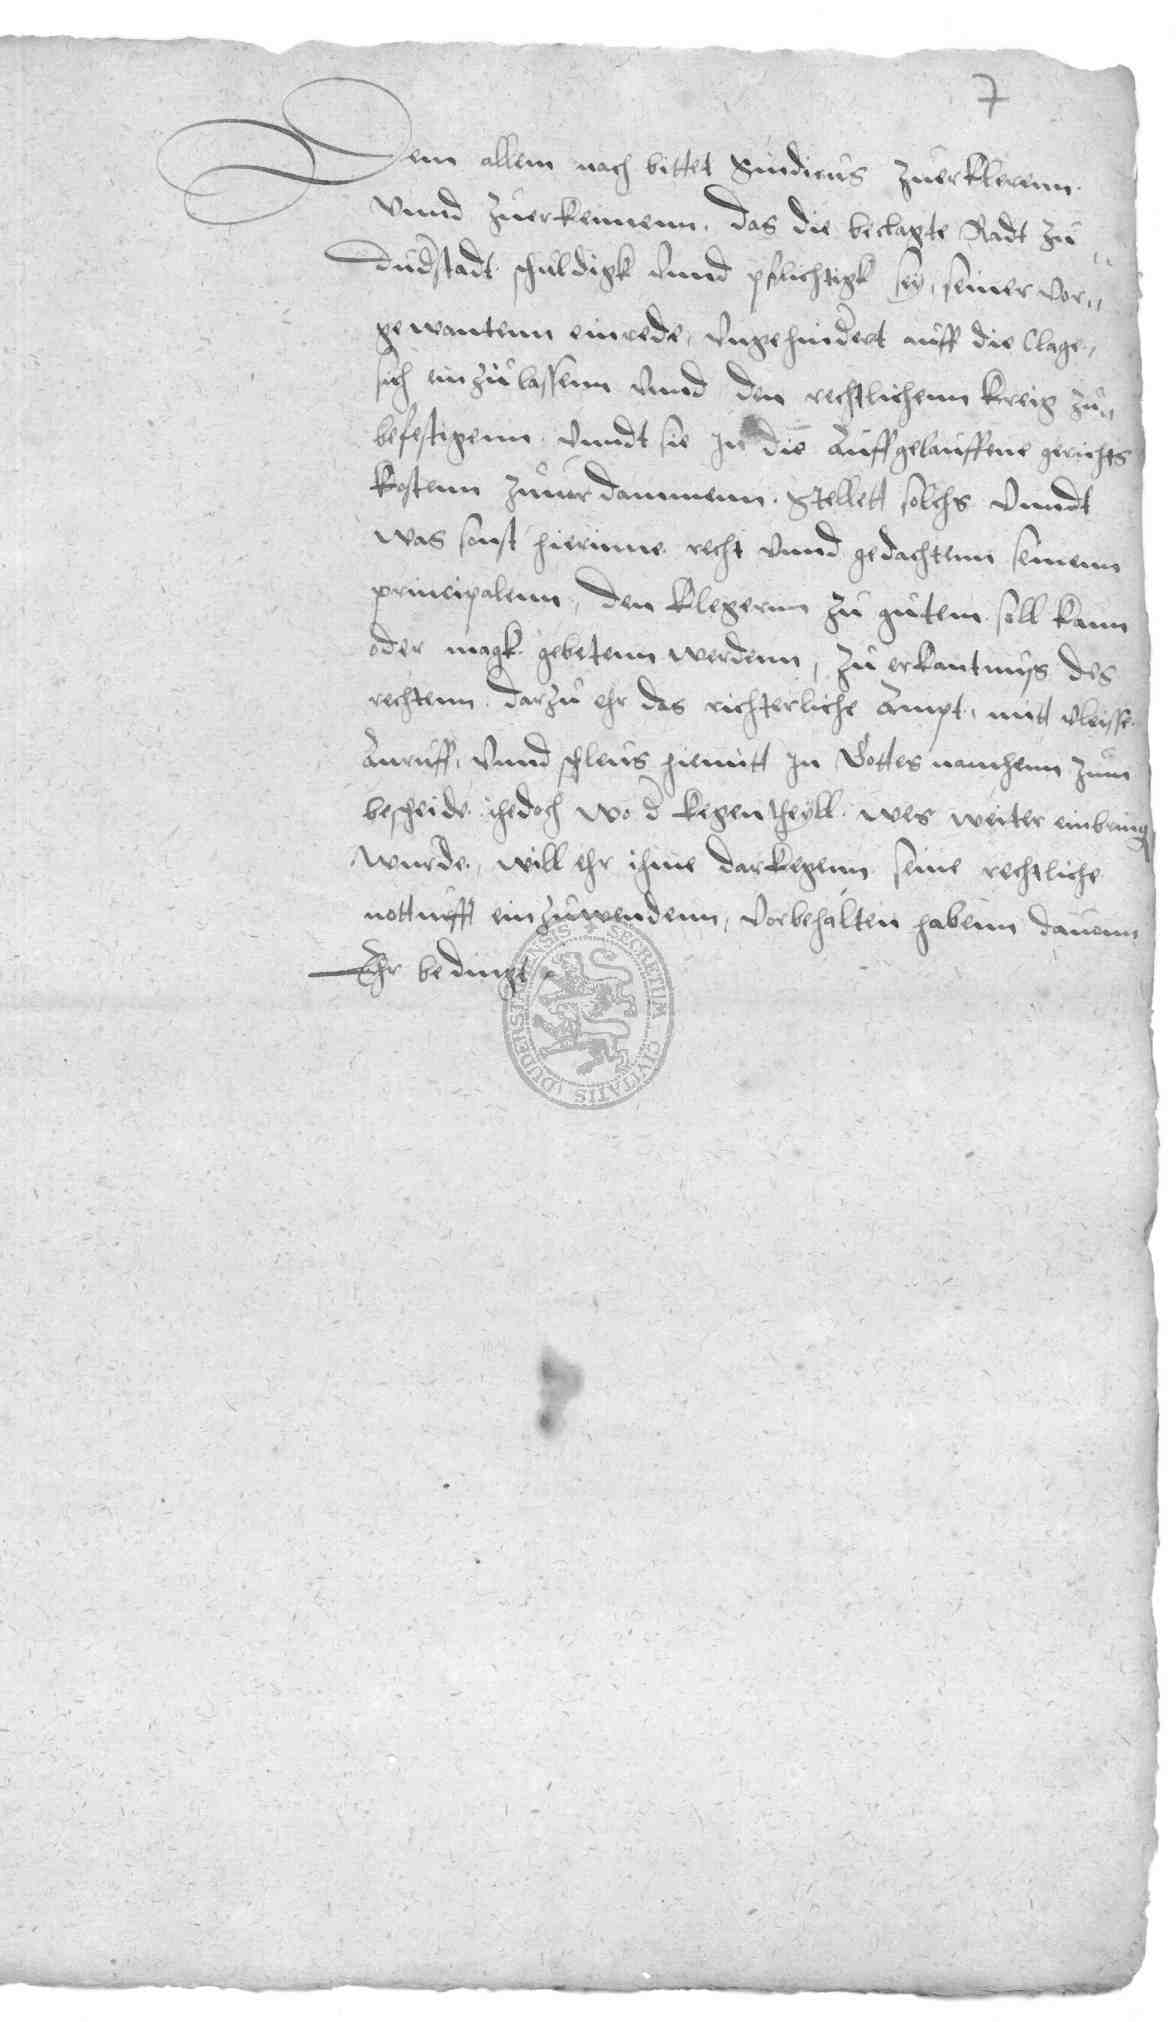 7
Dem allem nach bittet Sindicus zuerklerenn
vnnd zuerkennenn, das die beclagte Radt zu
Duderstadt schuldigk vnnd pflichtigk sey, seiner vor„
gewantenn einrede, vngehindert auff die Clage,
sich einzulassenn vnnd den rechtlichenn kreig zu„
befestigenn vnndt sie in die auffgelauffene gerichts
kostenn zuuerdammenn. Stellett solchs vnndt
was sonst hierinne recht vnnd gedachtenn seinenn
principalenn, den klegernn zu gutem soll kann
oder magk gebetenn werdenn, zu erkantnuss des
rechtenn darzu ehr das richterliche Ampt, mitt vleisse
Anruff, vnnd schleus hiemitt in Gottes namhenn zum
bescheide. ihedoch wo d kegentheyll wes weiter einbring
wurde, will ehr ihme darkegenn seine rechtliche
notturfft einzuwendenn, vorbehalten habenn dauonn
Ehr bedingt
SECRETUM CIVITATIS DUDERSTADENSIS